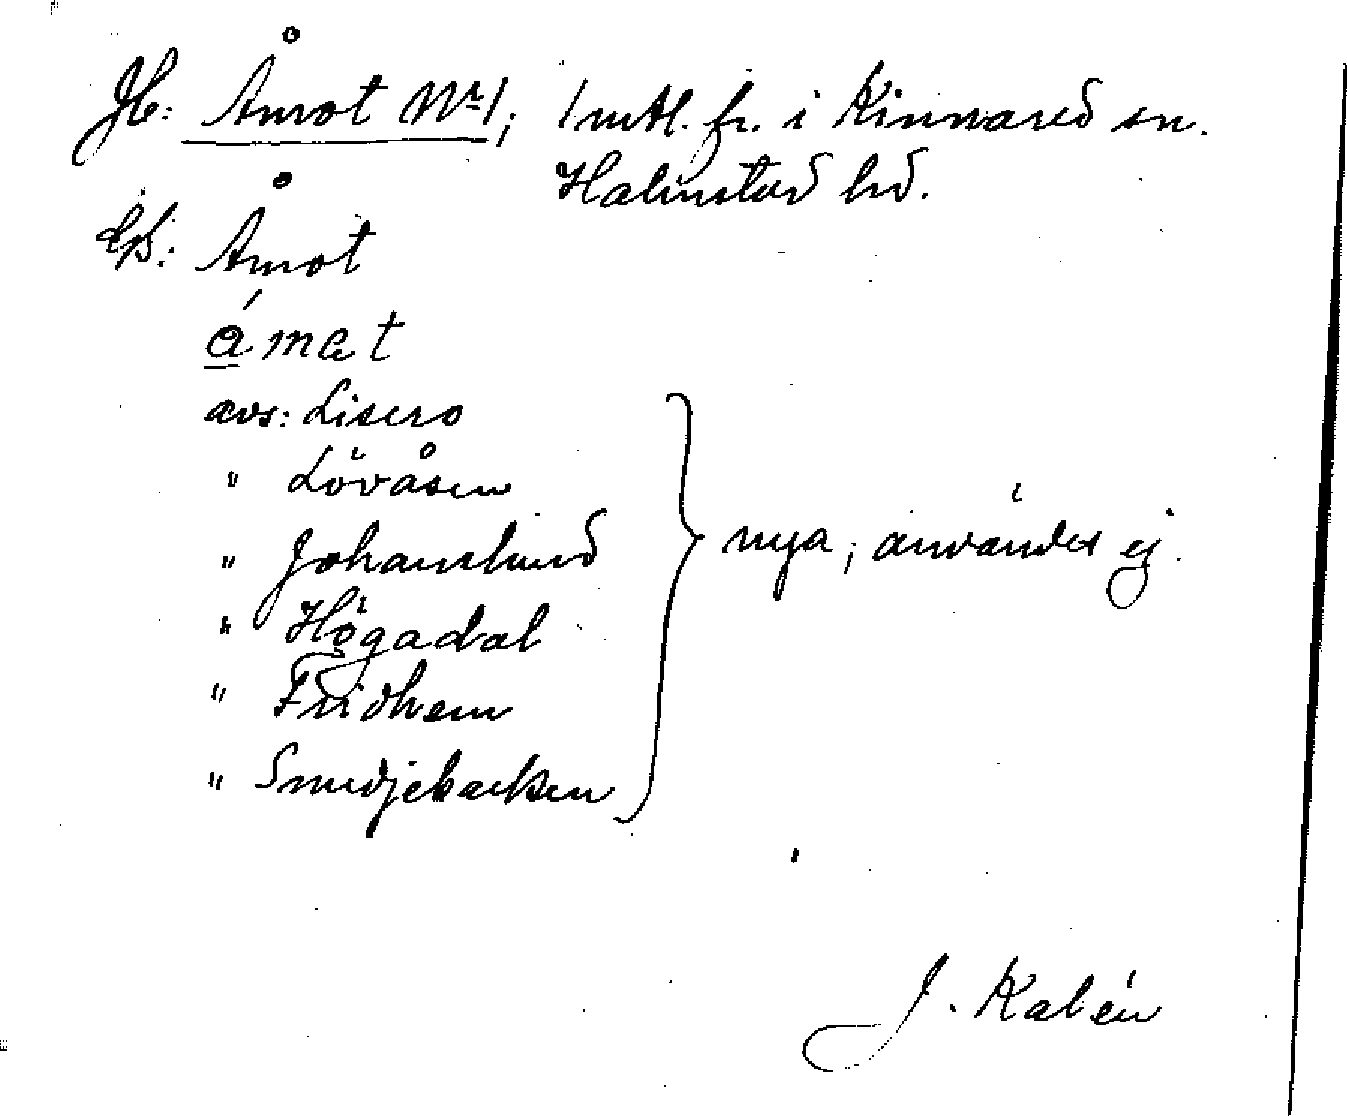 Jb: Åmot Nr 1; 1 mtl. fr. i Kinnared sn.
Halmstad hd.
Åmot
ámat
avs: Lisero
" Lövåsen
" Johanslund
" Högadal
" Fridhem
" Smedjebacken
nya, användes ej.
J. Kalén